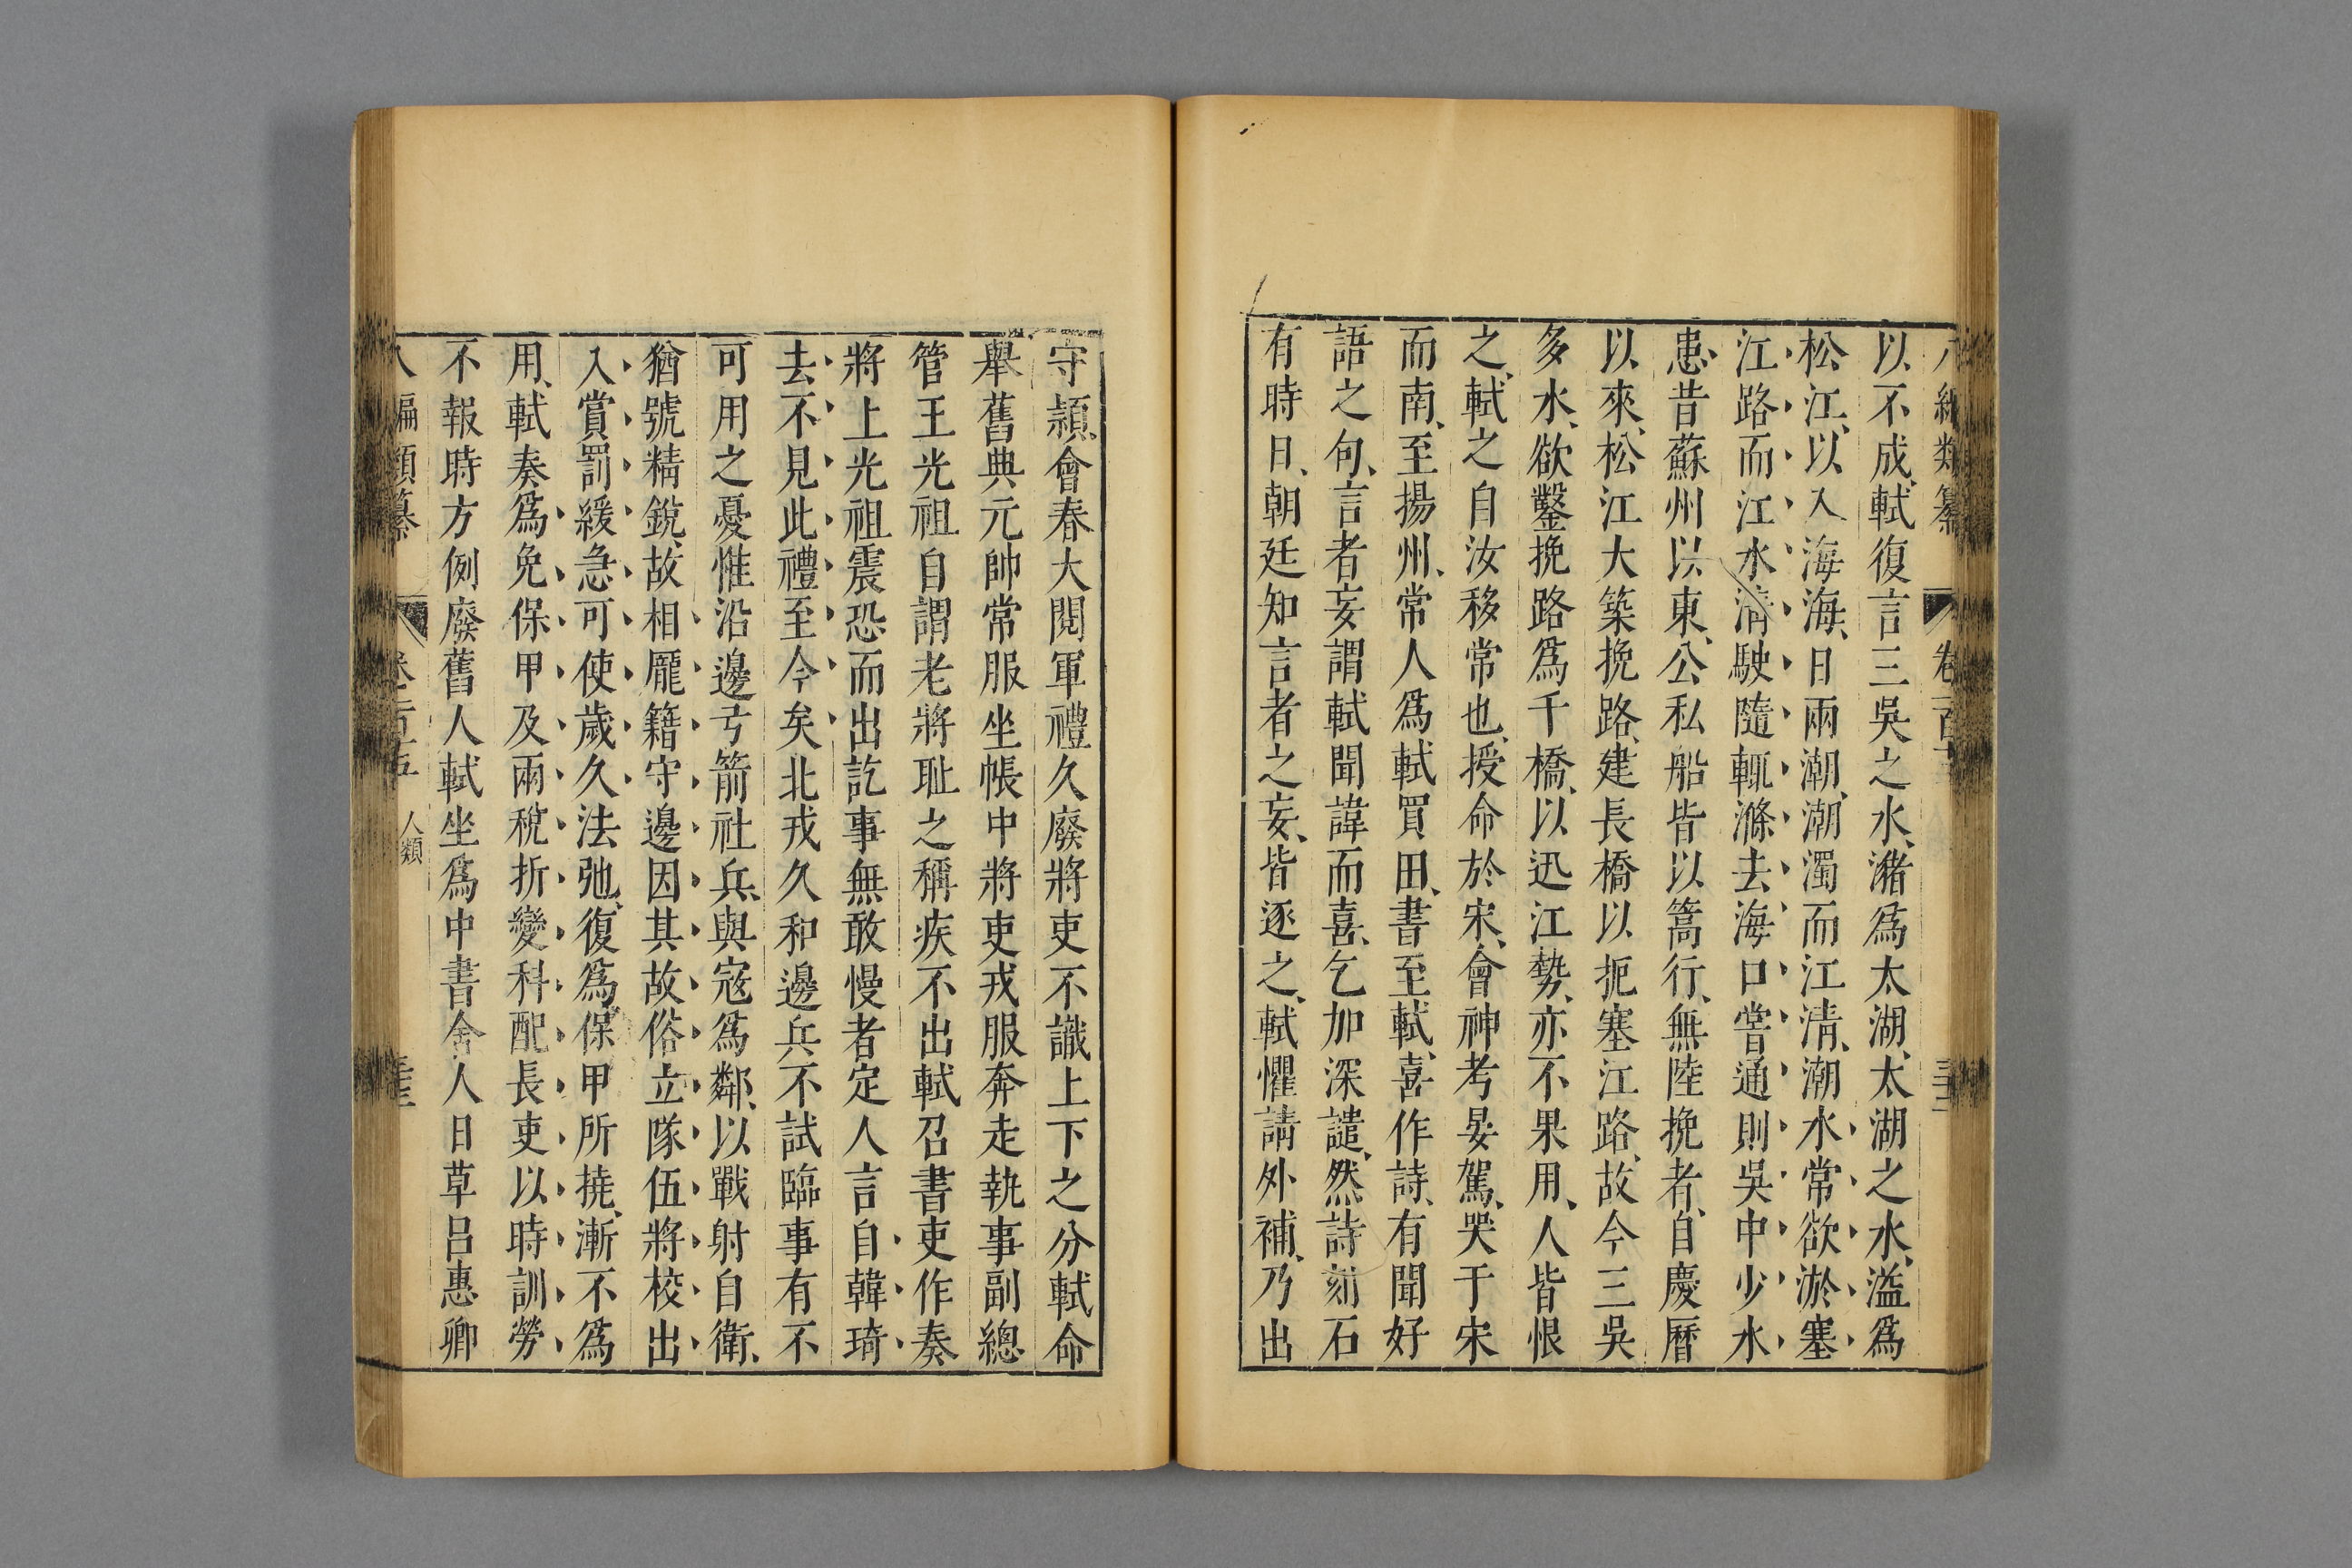 以不成軾復言三吳之水瀦爲太湖太湖之水溢爲
松江以入海海日兩潮潮濁而江清潮水常欲淤塞
江路而江水清駛隨輒滌去海口嘗通則吳中少水
患昔蘇州以東公私船皆以篙行無陸挽者自慶曆
以來松江大築挽路建長橋以扼塞江路故今三吳
多水欲鑿挽路爲千橋以迅江勢亦不果用人皆恨
之軾之自汝移常也授命於宋會神考晏駕哭于宋
而南至揚州常人爲軾買田書至軾喜作詩有聞好
語之句言者妄謂軾聞諱而喜乞加深譴然詩刻石
有時日朝廷知言者之妄皆逐之軾懼請外補乃出
守潁會春大閱軍禮久廢將吏不識上下之分軾命
舉舊典元帥常服坐帳中將吏戎服奔走執事副總
管王光祖自謂老將耻之稱疾不出軾召書吏作奏
將上光祖震恐而出訖事無敢慢者定人言自韓琦
去不見此禮至今矣北戎久和邊兵不試臨事有不
可用之憂惟沿邊弓箭社兵與寇爲鄰以戰射自衛
猶號精銳故相龐籍守邊因其故俗立隊伍將校出
入賞罰緩急可使歲久法弛復爲保甲所撓漸不爲
用軾奏爲免保甲及兩稅折變科配長吏以時訓勞
不報時方例廢舊人軾坐爲中書舍人日草呂惠卿
八編類纂 人類